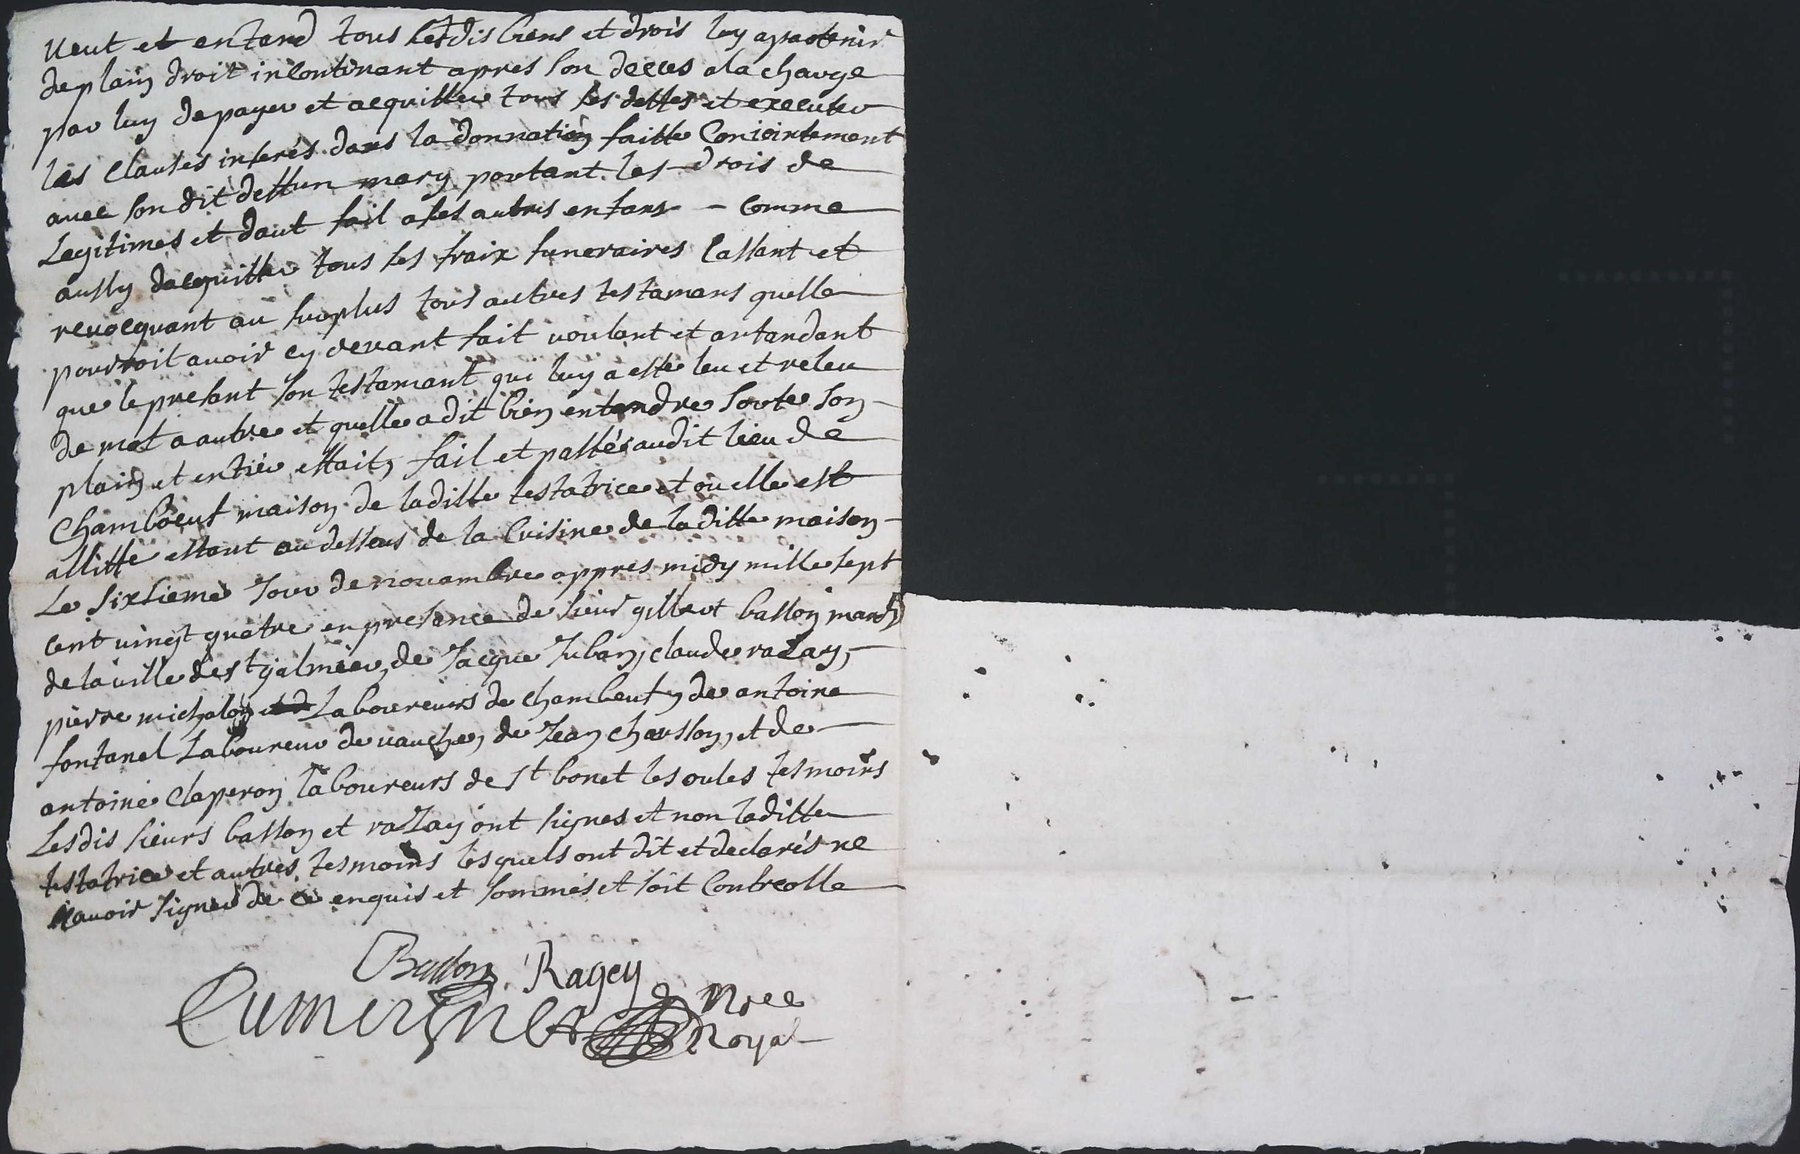 veut et entend tous lesdis biens et drois luy apartenir
de plain droit incontinant apres son deces a la charge
par luy de payer et acquitter tous ses dettes et executer
les clauses inserés dans la donnation faitte conjointement
avec son dit deffun mary portant les drois de
Legitimes et dont fait a ses autres enfans - comme
aussy dacquitter tous ses fraix funeraires cassant et
revocquant au surplus tous autres testamans quelle
pourroit avoir cy devant fait voulant et antandant
que le presant son testamant qui luy a esté leu et releu
de mot a autre et quelle a dit bien entendre sorte son
plain et entier effait, fait et passés audit lieu de
Chambœuf maison de laditte testatrice et ou elle est
allitte estant au dessous de la Cuisine de laditte maison
Le sixsieme Jour de novambre appres midy mille sept
cent vingt quatre en presence de sieur gilbert basson march
de la ville de st galmier, de Jacque Juban, claude razay,
pierre michalon Laboureurs de chambeuf, de antoine
fontanel Laboureur de vauche, de Jean chausson, et de
antoine claperon laboureurs de st bonet les oules tesmoins
Lesdis sieurs basson et razay ont signes et non laditte
testatrice et autres tesmoins lesquels ont dit et declarés ne
scavoir signer de ce enquis et sommés et soit controlle
Basson Ragey
nre
Royal